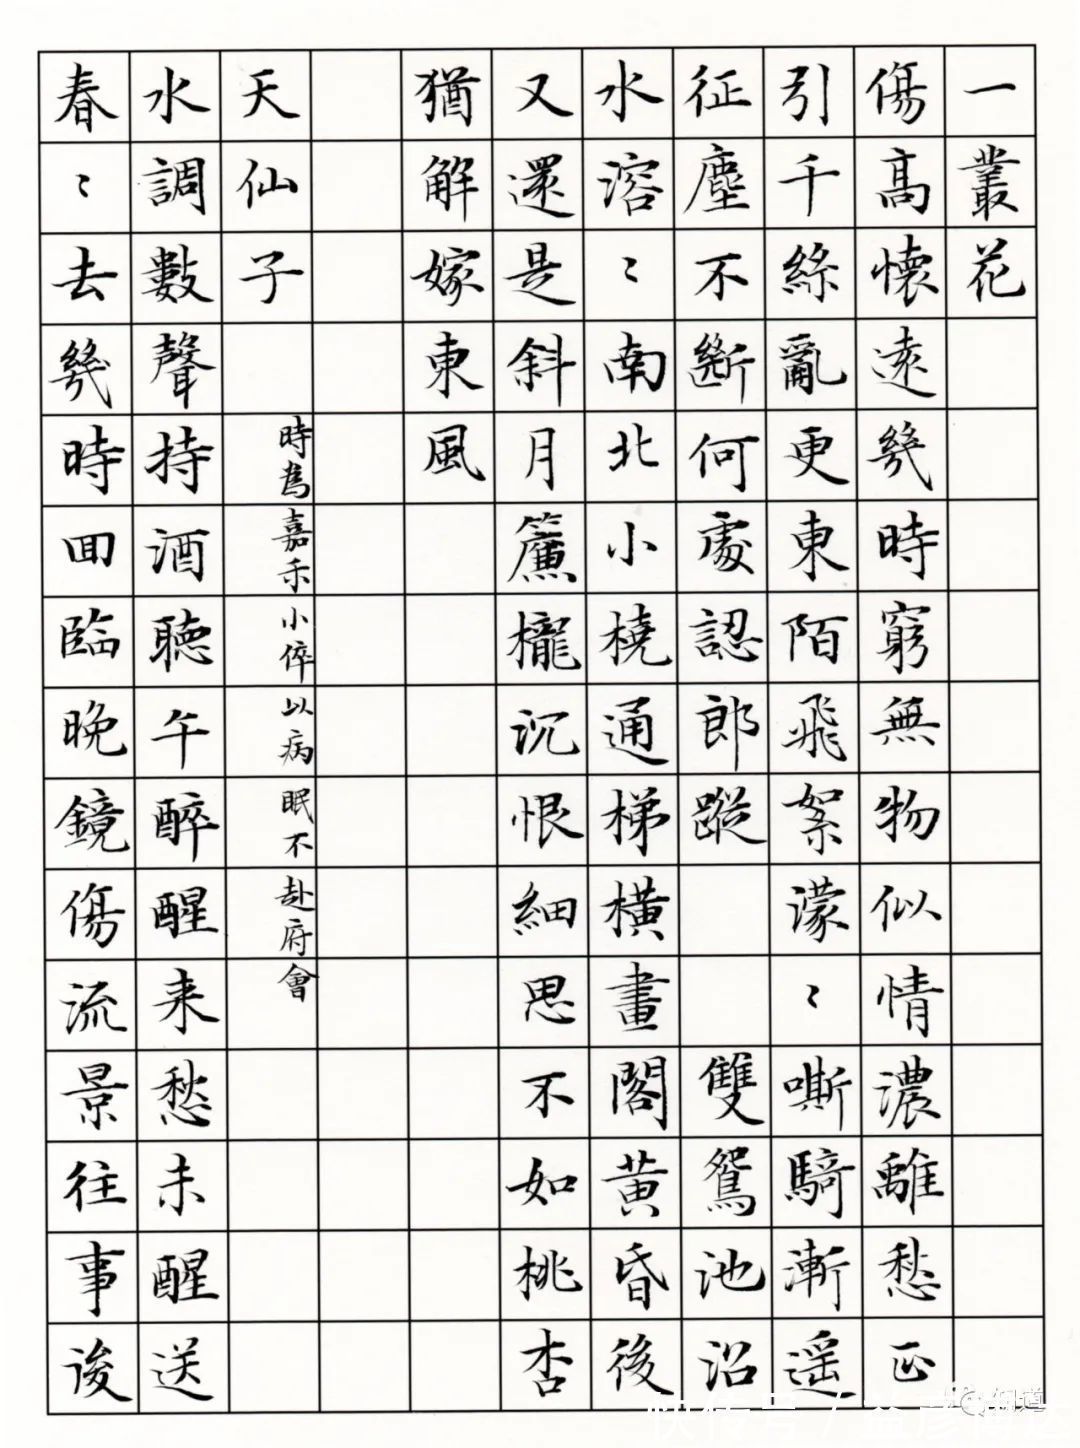 一叢花
傷高懷遠幾時窮無物似情濃離愁正
引千絲亂更東陌飛絮濛〻嘶騎漸遥
征塵不斷何處認郎蹤 雙鴛池沼
水溶〻南北小橈通梯橫畫閣黃昏後
又還是斜月簾櫳沉恨細思不如桃杏
猶解嫁東風
天仙子 時為嘉禾小倅以病眠不赴府會
水調數聲持酒聽午醉醒来愁未醒送
春〻去幾時囬臨晚鏡傷流景往事後
快传号 /